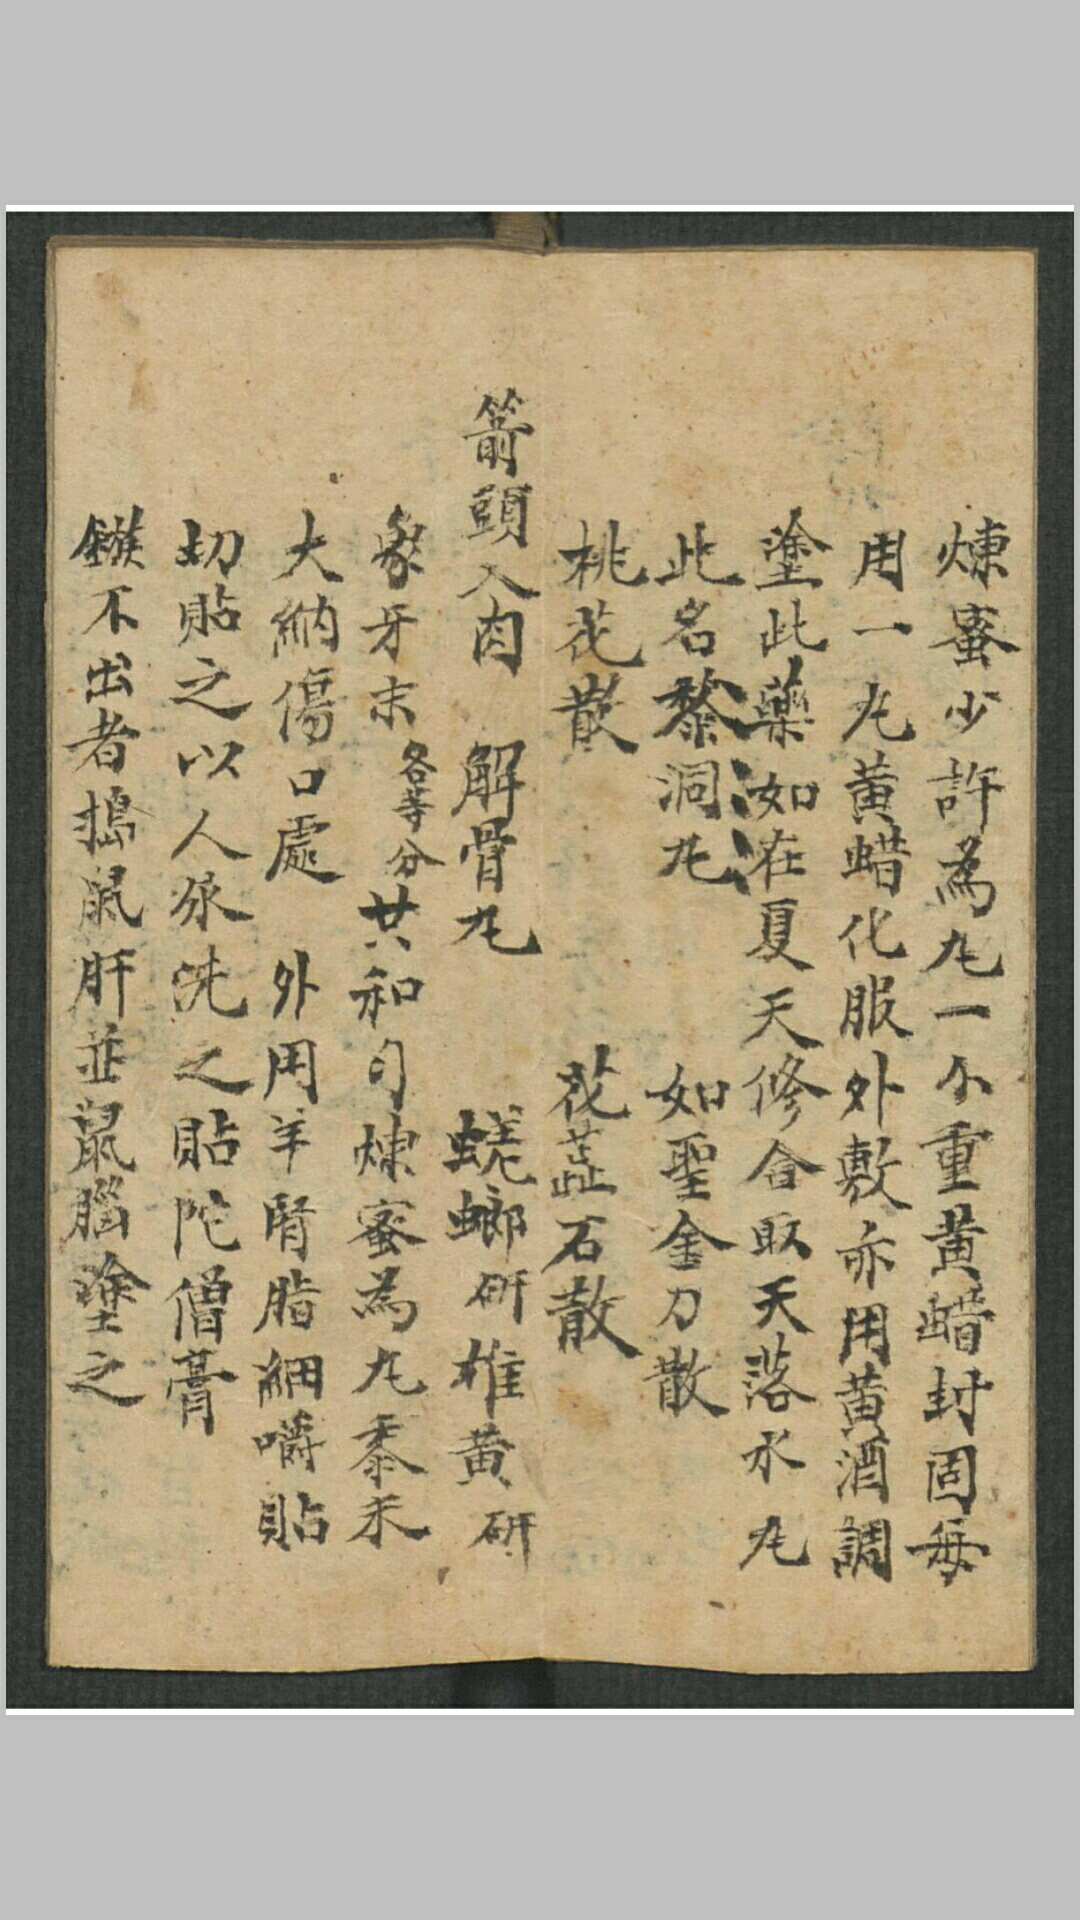 煉蜜少許為丸一小重黄蜡封固每
用一丸黄蜡化服外敷亦用黄酒調
塗此藥如在夏天修合取天落水丸
此名黎洞丸　如聖金刀散
桃花散　花蕋石散
箭頭入肉　解骨丸　蜣螂研雄黄研
象牙末各等分共和匀煉蜜為丸黍米
大納傷口處　外用羊腎脂細嚼貼
切貼之以人尿洗之貼陀僧膏
鏃不出者搗鼠肝並鼠腦塗之